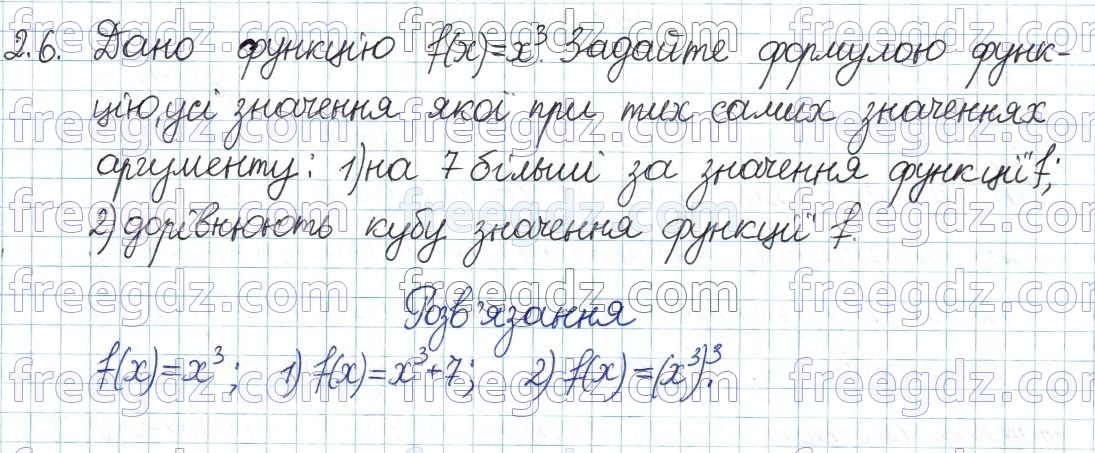 2.6. Дано функцію f(x)=x³. Задайте формулою функ-
цію, усі значення якої при тих самих значеннях
аргументу: 1) на 7 більші за значення функції f;
2) дорівнюють кубу значення функції f.
Розв'язання
f(x)=x³; 1) f(x)=x³+7; 2) f(x)=(x³)³.
freegdz.com